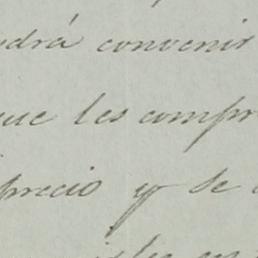 drá convenir
que les compr
precio y se